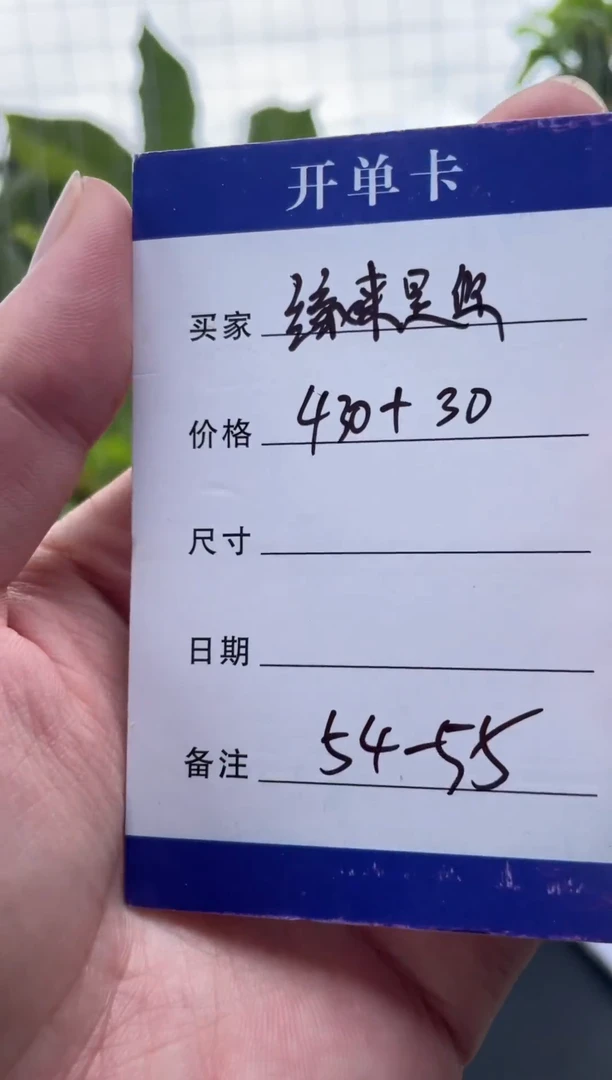 开单卡
买家 缘来是你
价格 430+30
尺寸
日期
备注 54-55